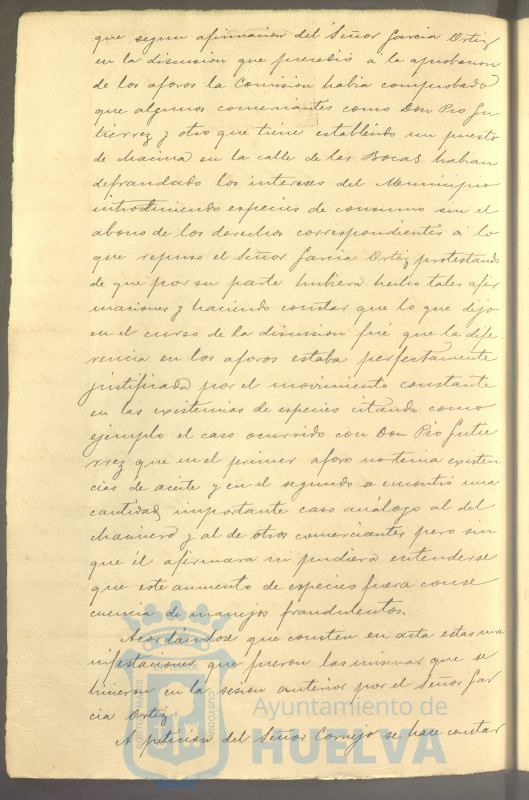 que segun afirmacion del Señor Garcia Ortiz
en la discusion que precedió á la aprobacion
de los aforos la Comision habia comprobado
que algunos comerciantes como Don Pio Gu
tierrez y otro que tiene establecido un puesto
de chacina en la calle de las Bocas habian
defraudado los intereses del Municipio
introduciendo especies de consumo sin el
abono de los derechos correspondientes á lo
que repuso el Señor Garcia Ortiz protestando
de que por su parte hubiera hecho tales afir
maciones y haciendo constar que lo que dijo
en el curso de la discusion fué que la dife-
rencia en los aforos estaba perfectamente
justificada por el movimiento constante
en las existencias de especies citando como
ejemplo el caso ocurrido con Don Pio Gutie
rrez que en el primer aforo no tenia existen
cias de aceite y en el segundo se encontró una
cantidad importante caso análogo al del
chacinero y al de otros comerciantes pero sin
que él afirmara ni pudiera entenderse
que este aumento de especies fuera conse
cuencia de manejos fraudulentos.
Acordándose que consten en acta estas ma
nifestaciones que fueron las mismas que se
hicieron en la sesion anterior por el Señor Gar
cia Ortiz.
A peticion del Señor Cornejo se hace constar
Ayuntamiento de
HUELVA